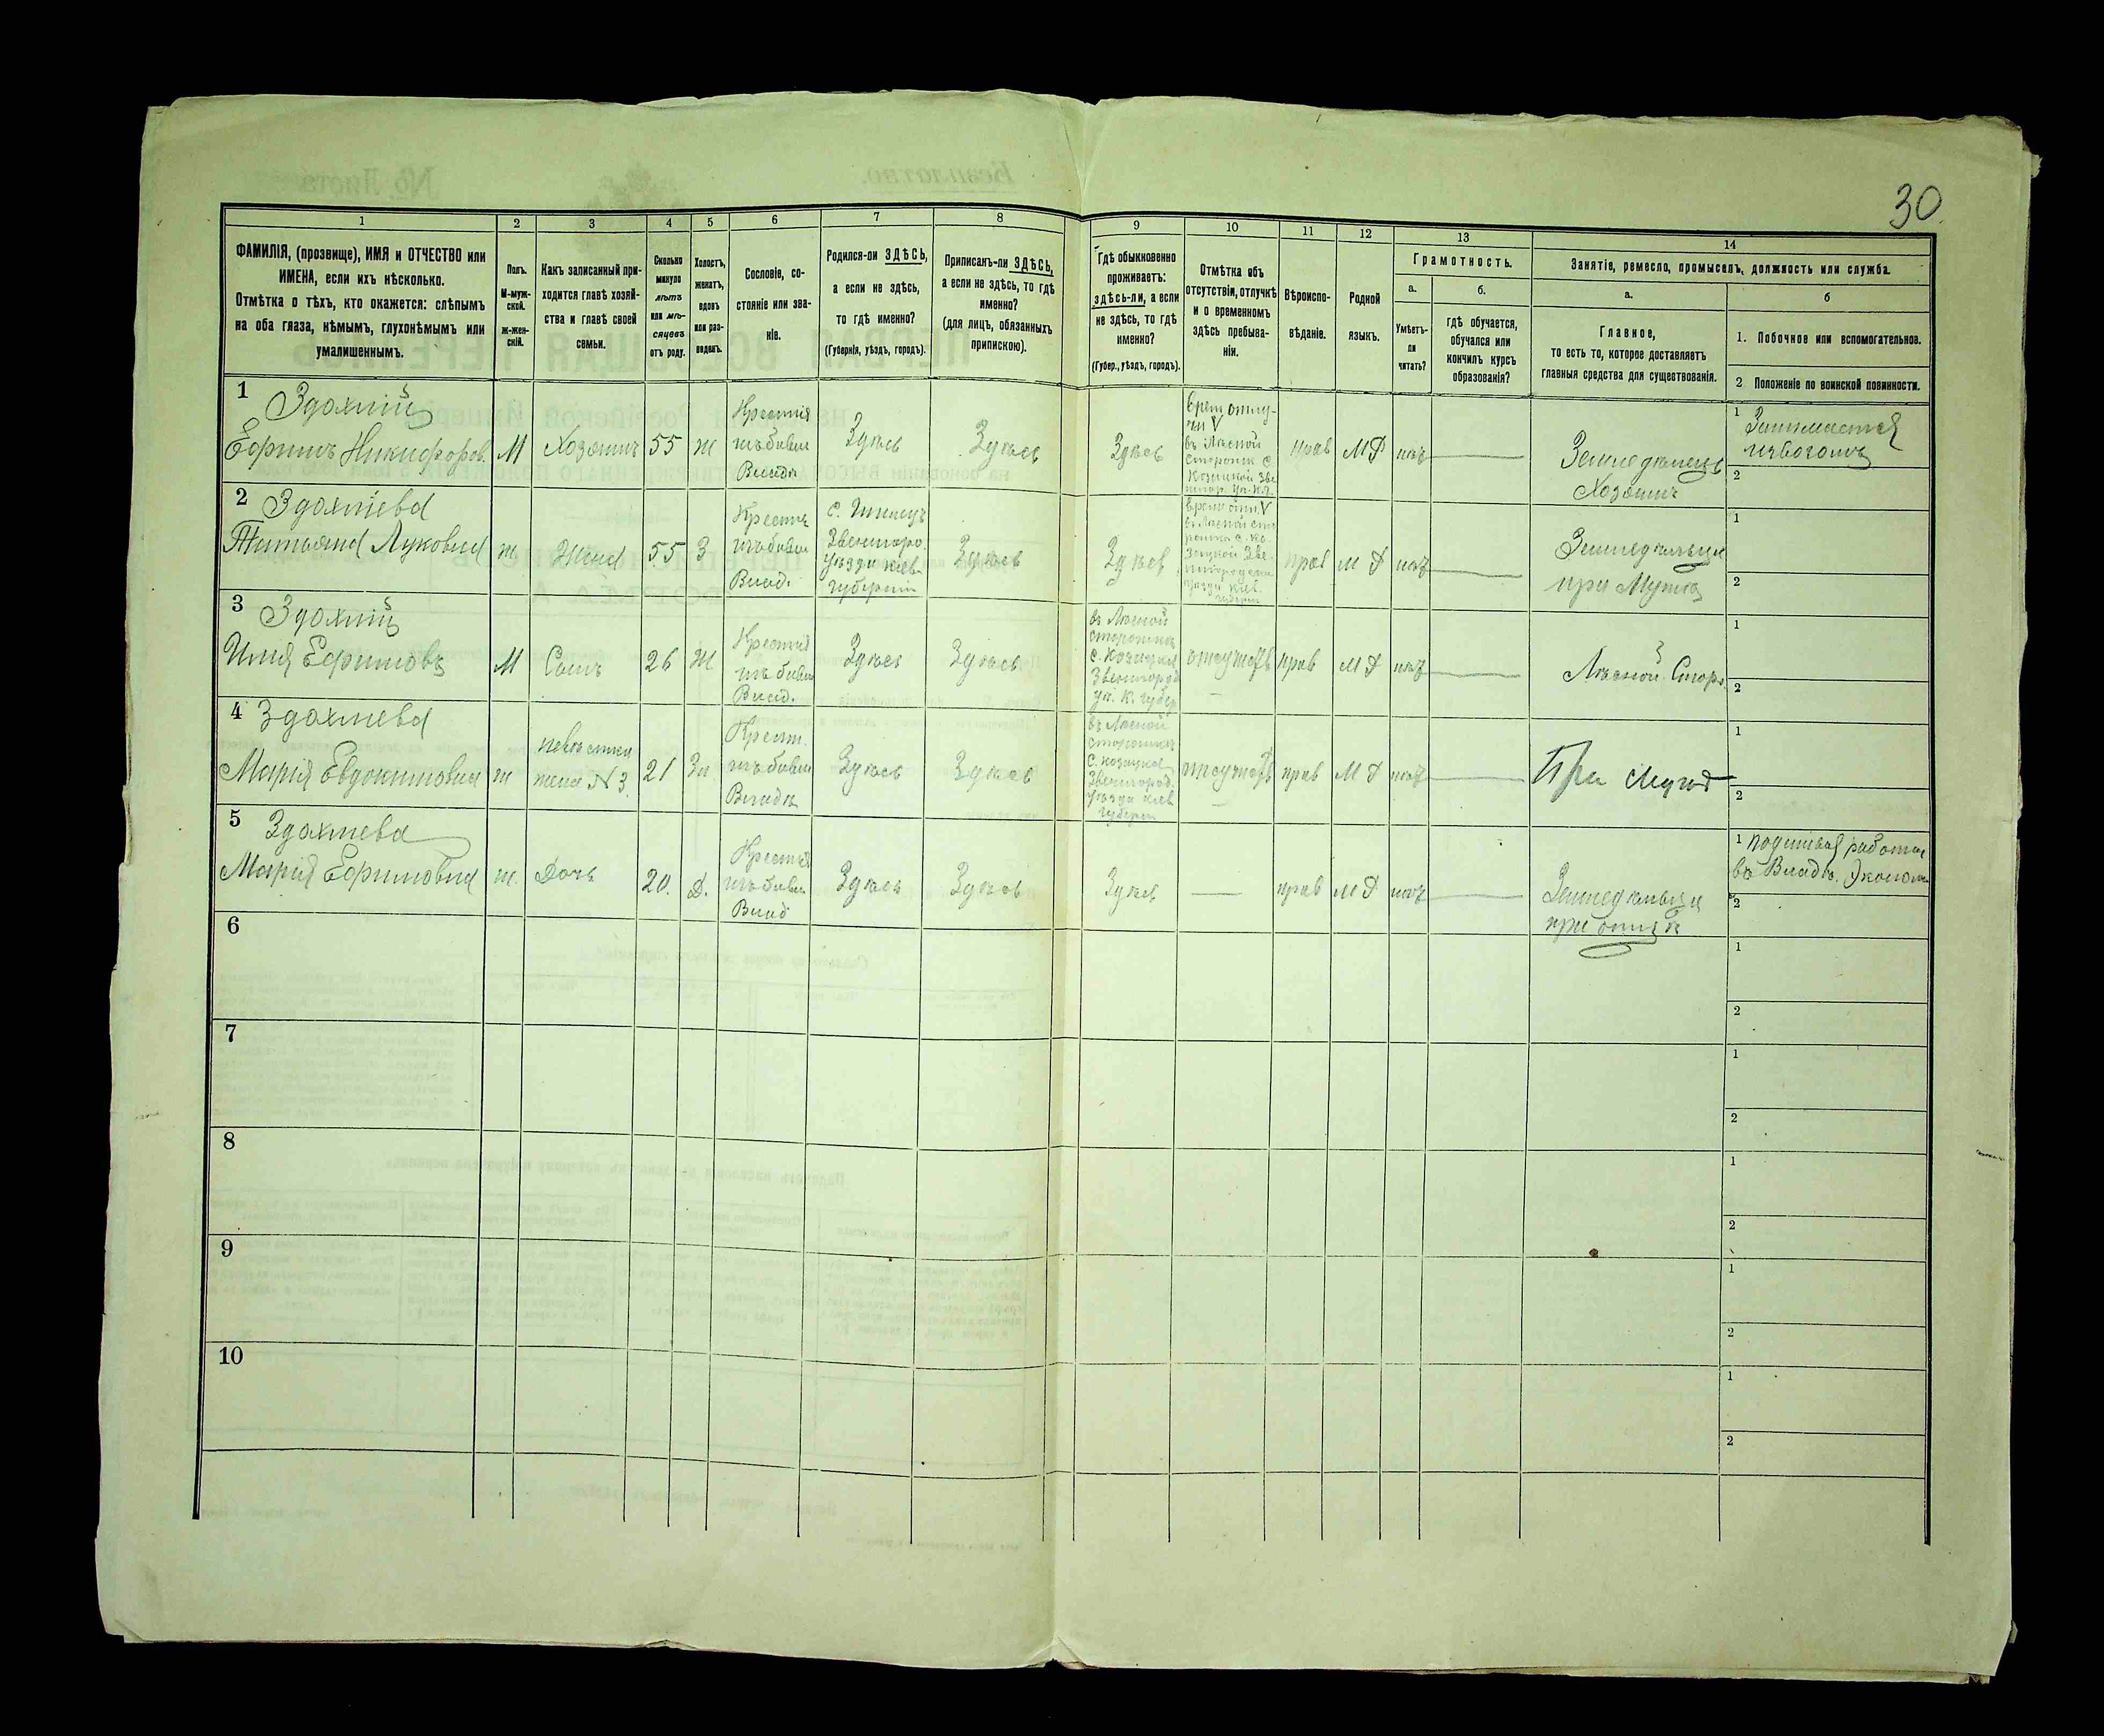 30
1 2 3 4 5 6 7 8 9 10 11 12 13 14
ФАМИЛІЯ, (прозвище), ИМЯ и ОТЧЕСТВО или
ИМЕНА, если ихъ нѣсколько.
Отмѣтка о тѣхъ, кто окажется: слѣпымъ
на оба глаза, нѣмымъ, глухонѣмымъ или
умалишеннымъ.
Полъ.
М-муж-
ской.
ж-жен-
скій.
Какъ записанный при-
ходится главѣ хозяй-
ства и главѣ своей
семьи.
Сколько
минуло
лѣтъ
или мѣ-
сяцевъ
отъ роду.
Холостъ,
женатъ,
вдовъ
или раз-
веденъ.
Сословіе, со-
стояніе или зва-
ніе.
Родился-ли ЗДѢСЬ,
а если не здѣсь,
то гдѣ именно?
(Губернія, уѣздъ, городъ).
Приписанъ-ли ЗДѢСЬ,
а если не здѣсь, то гдѣ
именно?
(для лицъ, обязанныхъ
припискою).
Гдѣ обыкновенно
проживаетъ:
здѣсь-ли, а если
не здѣсь, то гдѣ
именно?
(Губер., уѣздъ, городъ).
Отмѣтка объ
отсутствіи, отлучкѣ
и о временномъ
здѣсь пребыва-
ніи.
Вѣроиспо-
вѣданіе.
Родной
языкъ.
Грамотность.
а.
Умѣетъ-
ли
читать?
б.
гдѣ обучается,
обучался или
кончилъ курсъ
образованія?
Занятіе, ремесло, промыселъ, должность или служба.
а.
Главное,
то есть то, которое доставляетъ
главныя средства для существованія.
б
1. Побочное или вспомогательное.
2 Положеніе по воинской повинности.
1
Здохлій
Ефимъ Никифоров.
М
Хозяинъ
55
Ж
Крестья
изъ бывш
Владѣ
Здѣсь
Здѣсь
Здѣсь
врем отлу-
чи V
въ Лѣсной
сторожк с.
Козацкой Зве
прав
МР
нѣт
Земледѣлецъ
Хозяинъ
1 Занимается
извозомъ
2
2
Здохліева
Татьяна Луковна
ж
Жена
55
З
Крестья
изъ бывш
Влад.
Звенигоро.
уѣзда Кіев
губерніи
Здѣсь
Здѣсь
прав
МР
нѣт
Земледѣльца
при Мужѣ
1
2
3
Здохлій
Илія Ефимовъ
М
Сынъ
26
Ж
Крестья
изъ бывш
Влад.
Здѣсь
Здѣсь
въ Лѣсной
сторожкѣ
с. Козацкой
Звенигород
уѣ. К. губер
отсутств
прав
МР
нѣт
Лѣсной Сторо.
1
2
4
Здохлева
Марія Евдокимовна
ж
невѣстка
жена N 3.
21
За
Крест.
изъ бывш
Владѣ
Здѣсь
Здѣсь
въ Лѣсной
сторожкѣ
с. Козацкой
Звенигород.
уѣзда Кіев
губерн
отсутств
прав
МР
нѣт
При Мужѣ
1
2
5
Здохлева
Марія Ефимовна
ж.
Дочь
20.
Д.
Крестья
изъ бывш
Влад
Здѣсь
Здѣсь
Здѣсь
прав
МР
нѣт
Земледѣльца
при отцѣ
1 поденная работа
въ Владѣ. Эконом
2
6
1
2
7
1
2
8
1
2
9
1
2
10
1
2